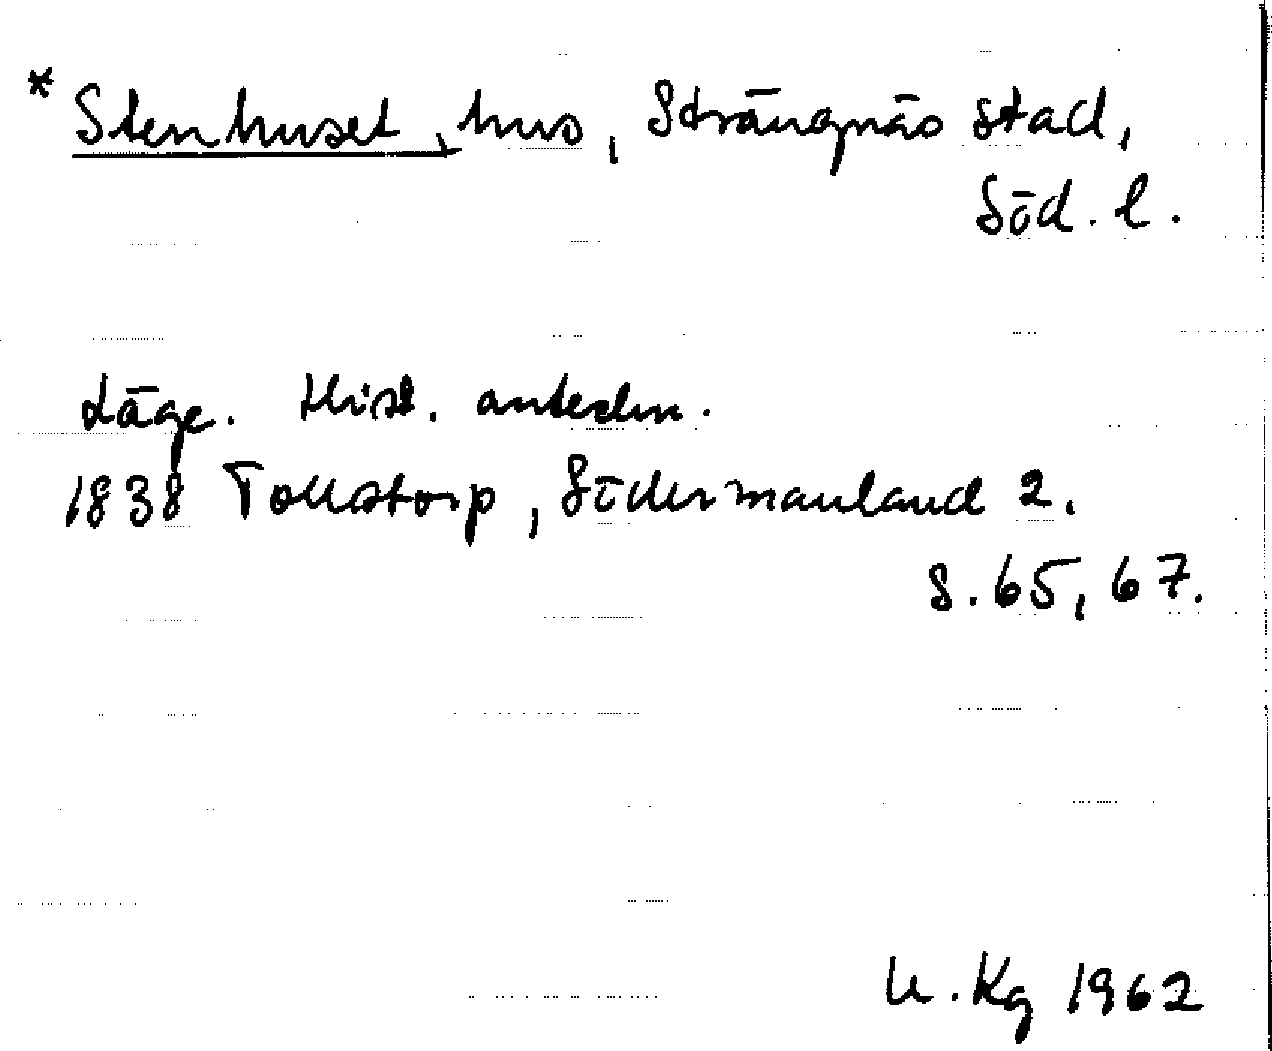 * Stenhuset, hus, Strängnäs stad,
Söd. l.
Läge. Hist. anteckn.
1838 Tollstorp, Södermanland 2.
S. 65, 67.
U. Kg 1962